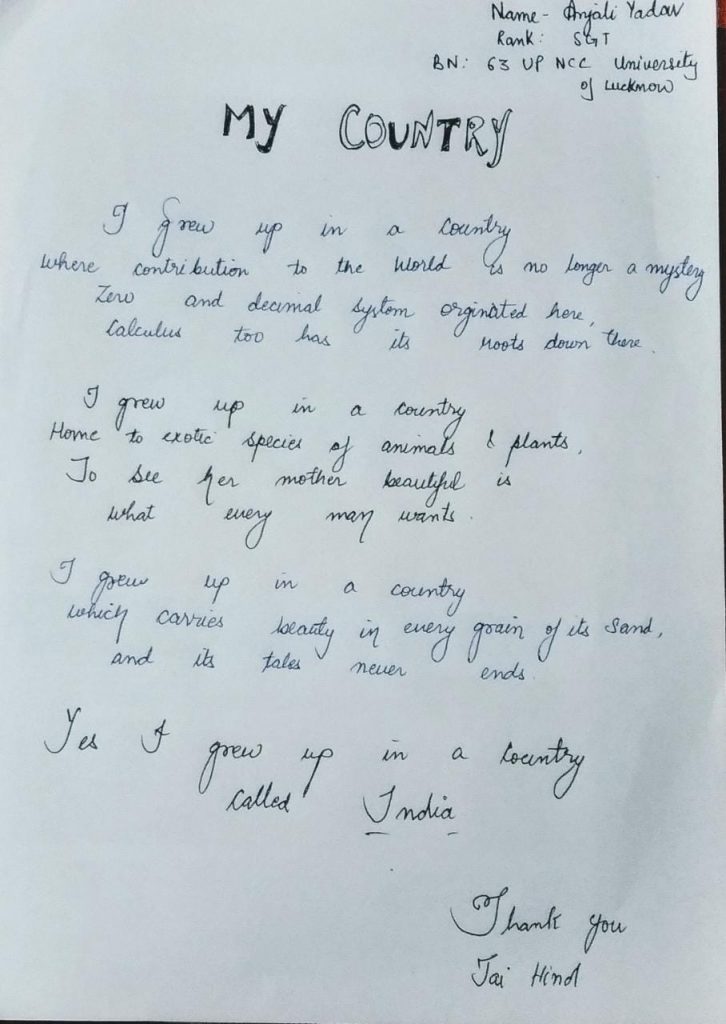 Name- Anjali Yadav
Rank: SGT
BN: 63 UP NCC University
of Lucknow
MY COUNTRY
I grew up in a country
where contribution to the World is no longer a mystery
Zero and decimal system orginated here,
Calculus too has its roots down there.
I grew up in a country
Home to exotic species of animals & plants,
To see her mother beautiful is
what every man wants.
I grew up in a country
which carries beauty in every grain of its sand,
and its tales never ends.
Yes I grew up in a country
called India
Thank you
Jai Hind